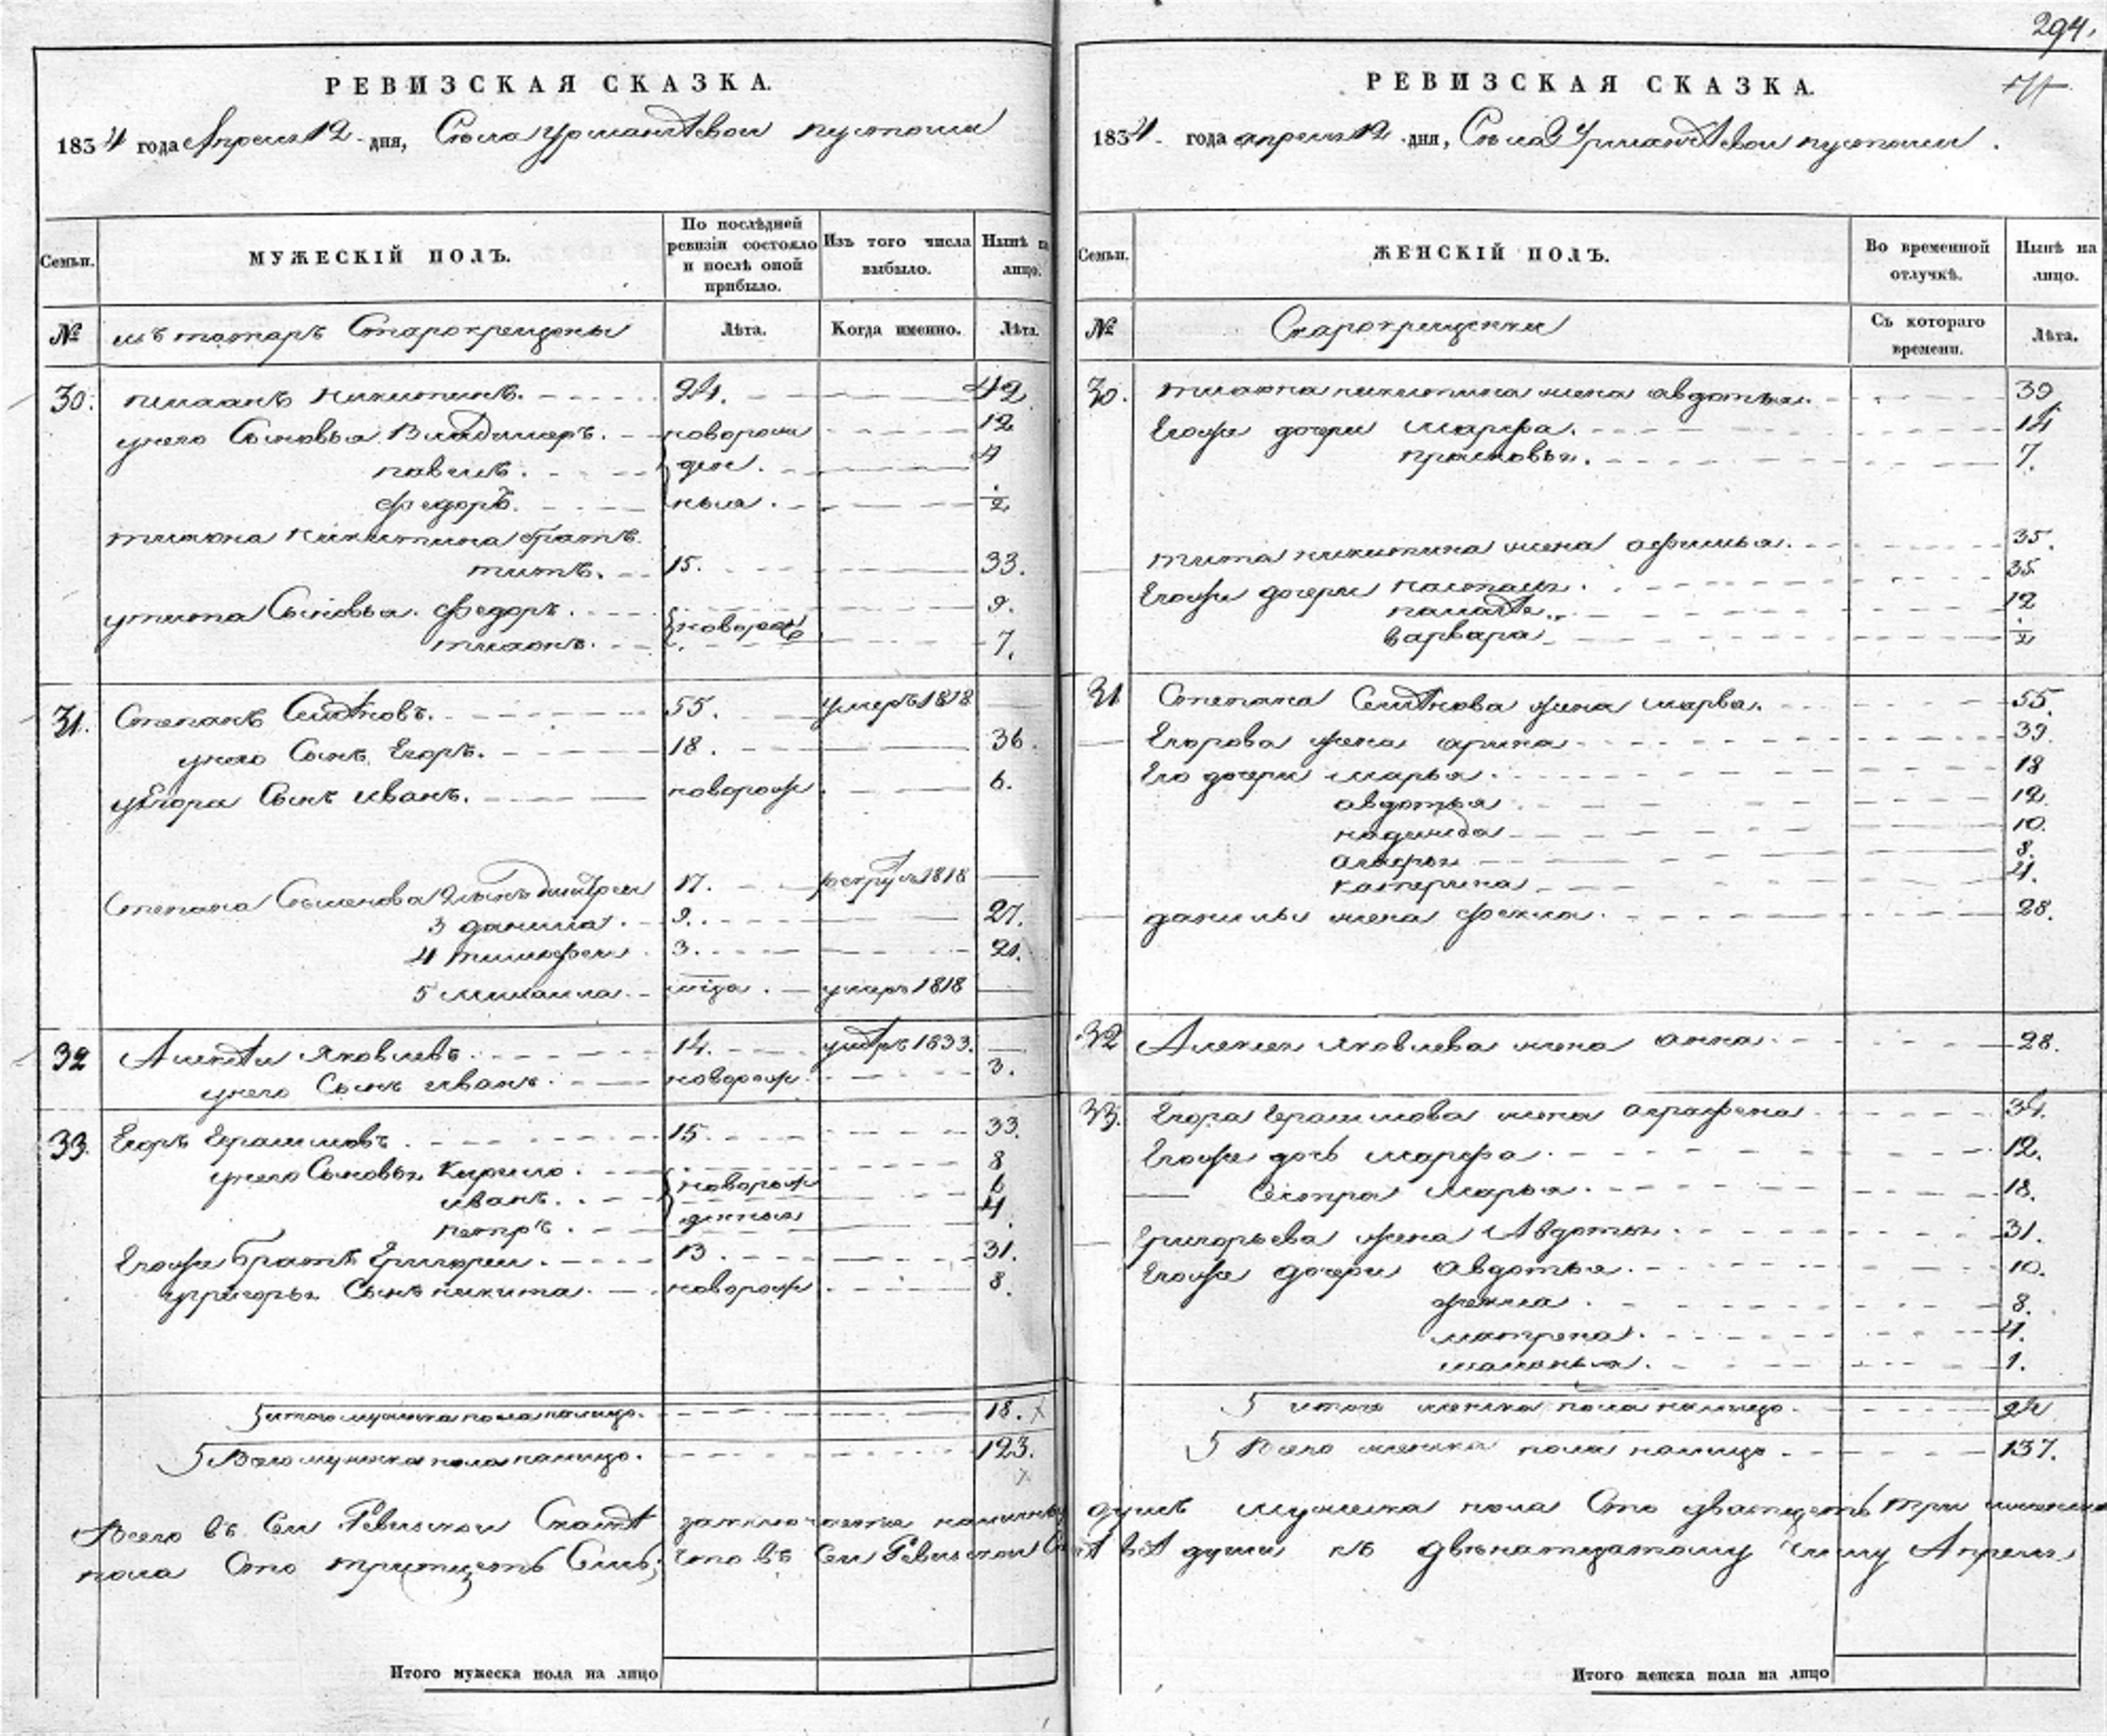 294.
РЕВИЗСКАЯ СКАЗКА.
1834 года Апреля 12 дня, Села пустоши
Семьи.
МУЖЕСКІЙ ПОЛЪ.
По послѣдней ревизіи состояло и послѣ оной прибыло.
Изъ того числа выбыло.
Нынѣ на лицо.
№
изъ татаръ Старокрещены
Лѣта.
Когда именно.
Лѣта.
30. Никитинъ. 24. 42
унего Сыновья Владимеръ. новорож 12
павелъ. ден. 4
Федоръ. ныя. 1/2
Никитина братъ
титъ. 15. 33.
утита Сыновья Федоръ. новорож 9.
7.
31. Степанъ Семѣновъ. 55. умеръ 1818
унего Сынъ Егоръ. 18. 36.
уЕгора Сынъ иванъ. новорож 6.
Степана Семенова 2 сынъ дмитреи 17. рекрутъ 1818
3 данила. 9. 27.
4 тимофеи 3. 21.
5 михаила. умеръ 1818
32 Алексѣи Яковлевъ. 14. умѣръ 1833.
унего Сынъ иванъ. новорож. 3.
33. Егоръ Ерасимовъ. 15. 33.
унего Сыновья Кирило. новорож 8
иванъ. денныя 6
петръ. 4.
Егоже братъ Григореи. 13. 31.
уГригорья Сынъ никита. новорож 8.
итого мужеска пола налицо. 18.
Всего мужеска пола налицо. 123.
Всего въ Сеи Ревискои Сказкѣ заключается наличныхъ
пола Сто тритцеть Семь, что въ Сеи Ревискои
Итого мужеска пола на лицо
РЕВИЗСКАЯ СКАЗКА.
1834. года апреля 12 дня, Села пустоши.
Семьи.
ЖЕНСКІЙ ПОЛЪ.
Во временной отлучкѣ.
Нынѣ на лицо.
№
Старокрещенки
Съ котораго времени.
Лѣта.
30. никитина жена авдотья. 39
Егоже дочери марфа. 14
прасковья. 7.
тита никитина жена афимья. 35.
Егоже дочери 35
12
варвара 1/2
31 Степана Семѣнова жена марва. 55.
Егорова жена арина. 39.
Его дочери марья. 18
авдотья 12
надежда 10.
8.
катерина 4.
данилы жена фекла. 28.
32 Алексея Яковлева жена анна. 28.
33. Егора Ерасимова жена аграфена 34.
Егоже дочь марфа. 12.
Сестра марья. 18.
Григорьева жена Авдотья. 31.
Егоже дочери авдотья. 10.
фекла. 8.
матрена. 4.
маланья. 1.
итого женска пола налицо. 24
Всего женска пола налицо. 137.
душъ мужеска пола Сто дватцеть три женска
душа къ двенатцатому числу Апреля
Итого женска пола на лицо